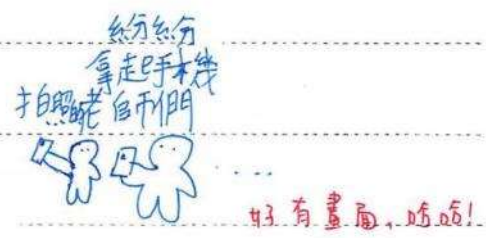 紛紛
拿起手機
拍照的老師們
....
好有畫面,哈哈!